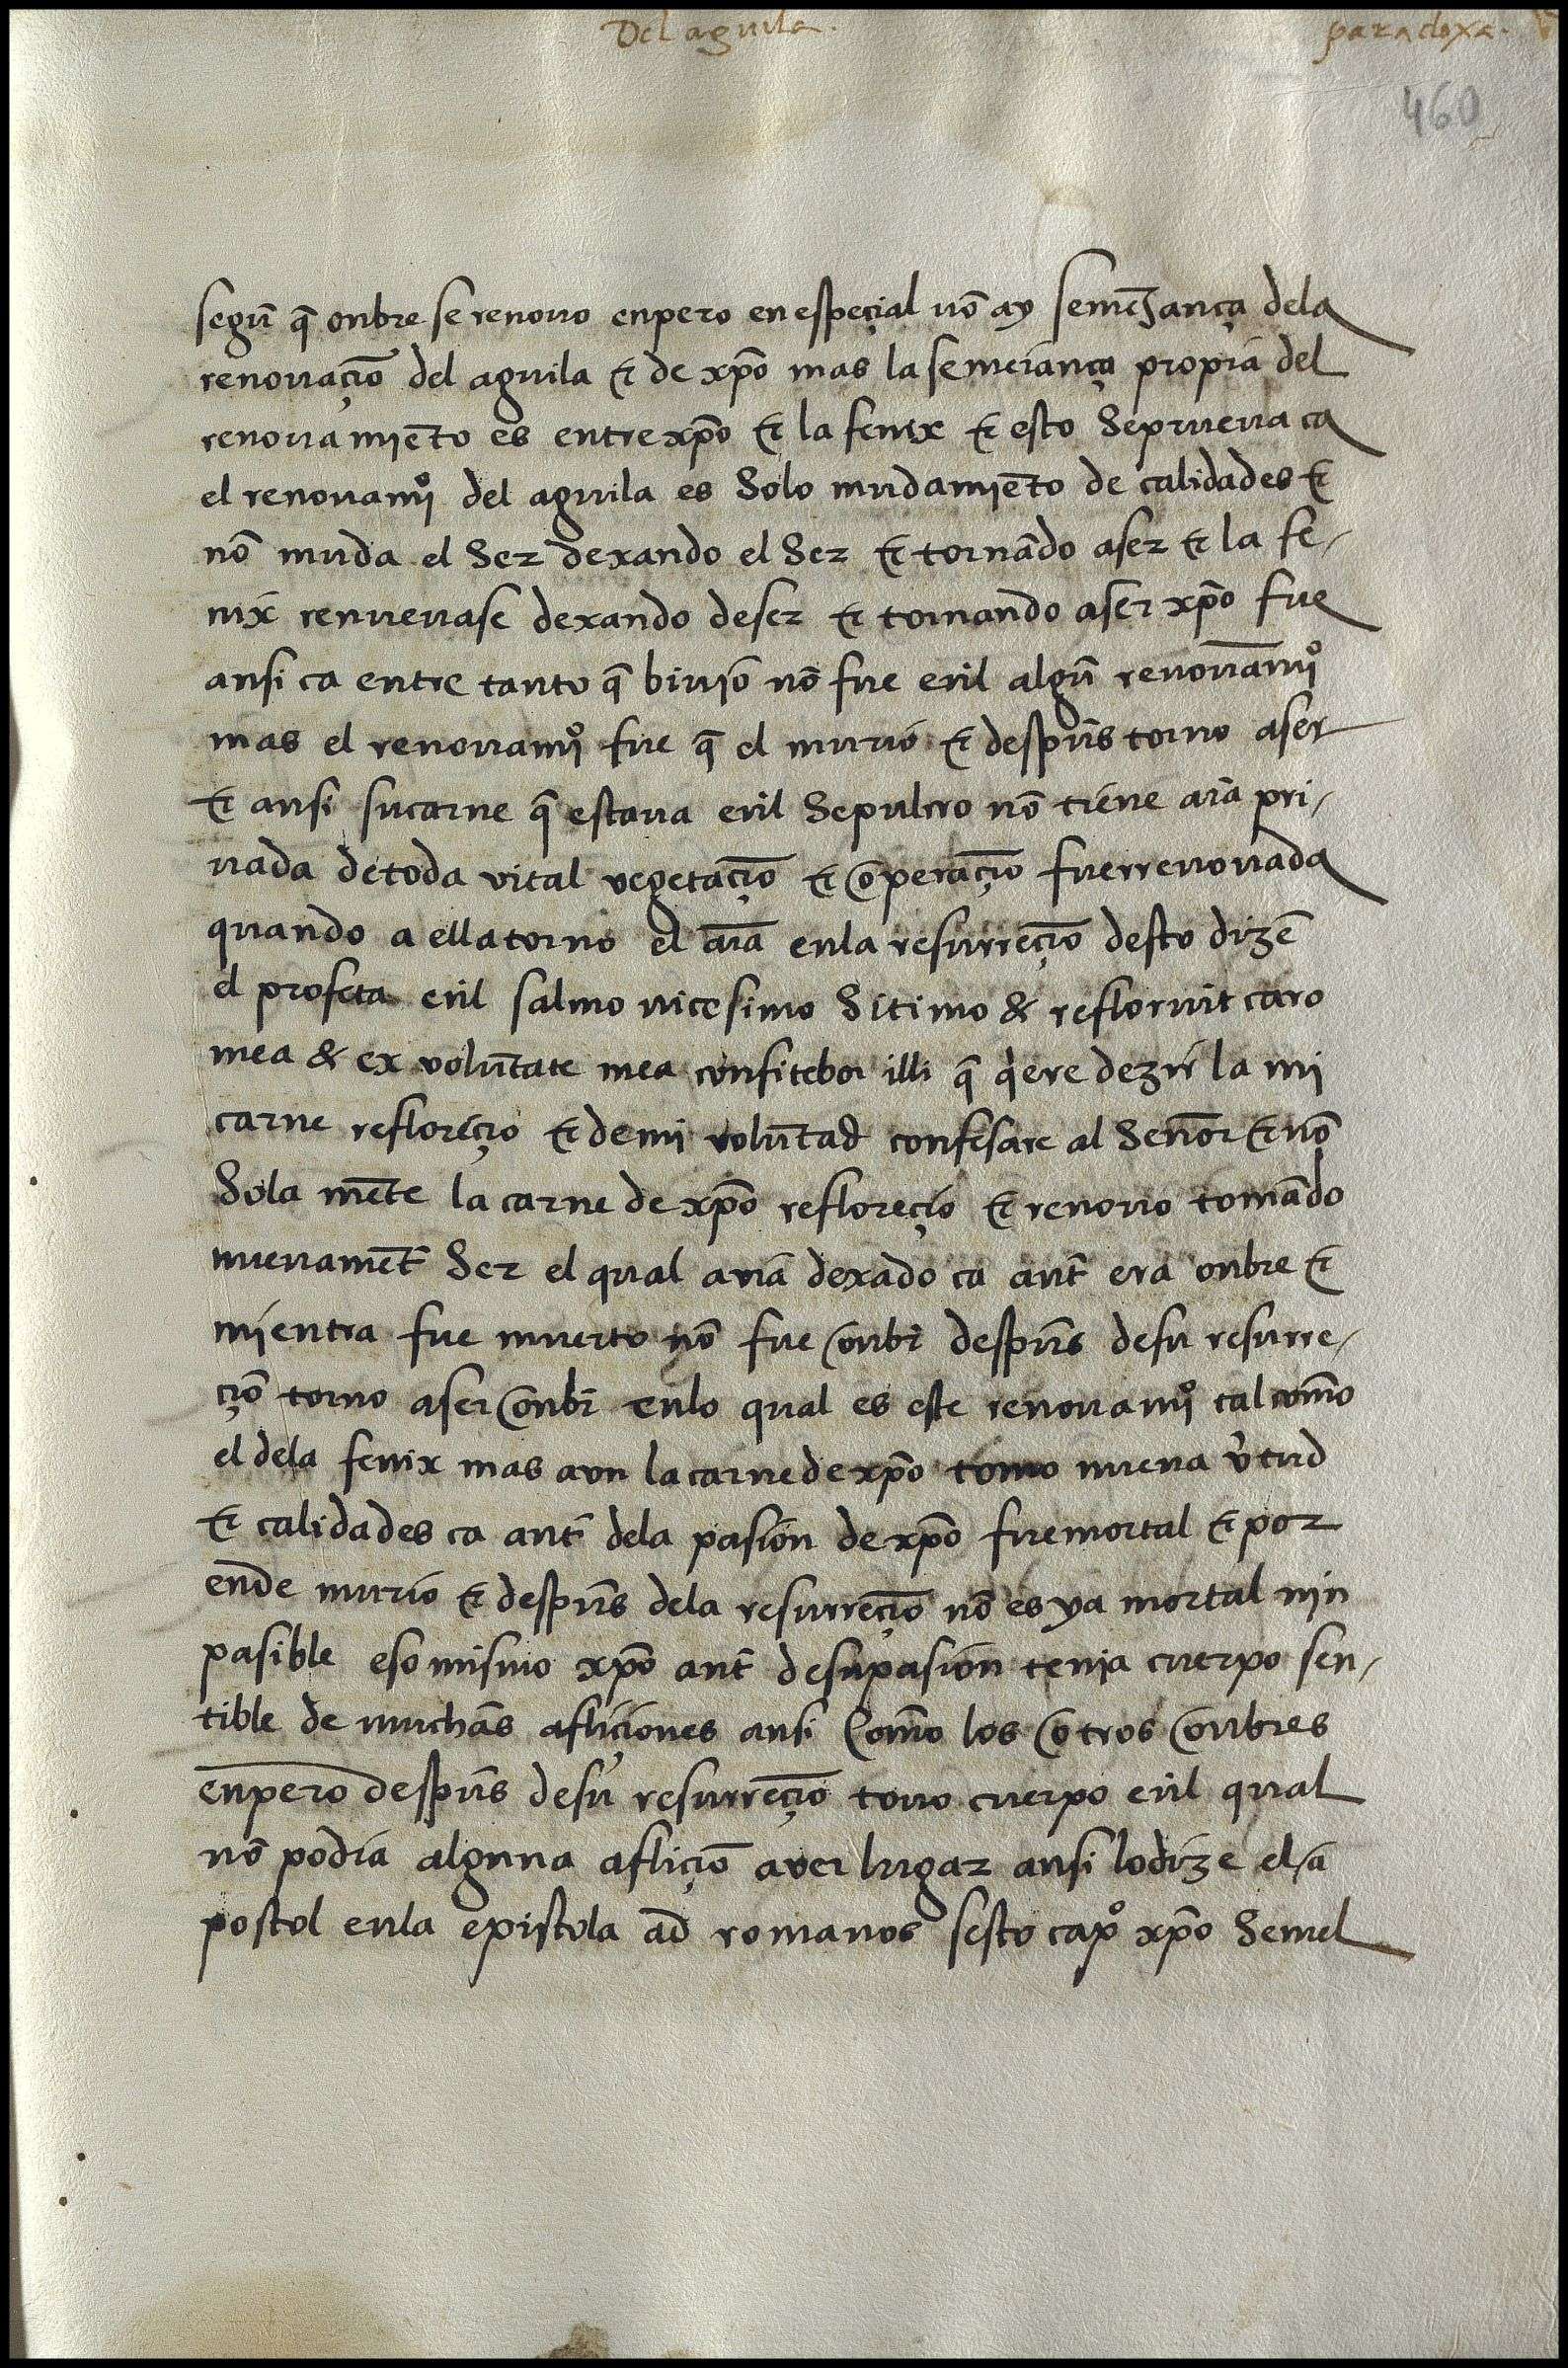 Del aguila.
paradoxa.
460
segũ q̃ onbre se renouo enpero en espeçial nõ ay semeJança dela
renouaçiõ del aguila & de xp̃o mas la semeiança propia del
renouamiẽto es entre xp̃o & la fenix & esto se prueua ca
el renouamiº del aguila es solo mudamiẽto de calidades &
nõ muda el ser dexando el ser & tornãdo aser & la fe-
nix renueuase dexando deser & tornando aser xp̃o fue
ansi ca entre tanto q̃ biuio nõ fue enl algũ renouamiº
mas el renouamiº fue q̃ el murio & despũs torno aser
& ansi sucarne q̃ estaua enl sepulcro nõ tiene aĩa pri-
uada detoda vital vegetaçiõ & operaçiõ fuerrenouada
quando a ella torno el aĩa enla resurreçiõ desto dizẽ
el profeta enl salmo vicesimo sitimo & refloruit caro
mea & ex volũtate mea confitebor illi q̃ q̃ere dezir la mi
carne refloreçio & demi volũtad confesare al señor & nõ
sola mẽte la carne de xp̃o refloreçio & renouo tomãdo
nueuamẽt ser el qual auia dexado ca ant̃ era onbre &
mientra fue muerto nõ fue onbr̃ despũs desu resurre-
çiõ torno aser onbr̃ enlo qual es este renouamiº tal com̃o
el dela fenix mas avn lacarne de xp̃o tomo nueua v̉tud
& calidades ca ant̃ dela pasion de xp̃o fue mortal & por
ende murio & despũs dela resurreçiõ nõ es ya mortal nin
pasible eso mismo xp̃o ant̃ desu pasion tenia cuerpo sen-
tible de muchas afliciones ansi com̃o los otros onbres
enpero despũs desu resurreçiõ touo cuerpo enl qual
nõ podia alguna afliçiõ aver lugar ansi lodize el a
postol enla epistola ad romanos sesto capº xp̃o semel